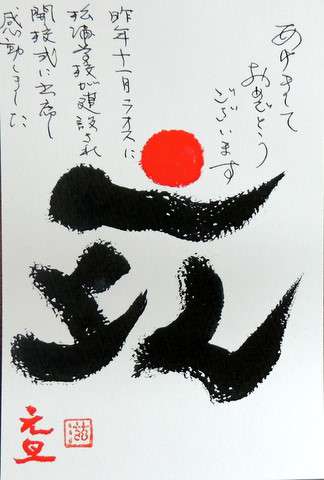 あけまして
おめでとう
ございます
昨年十一月ラオスに
学校が建設され
開校式に出席し
感動しました
元旦